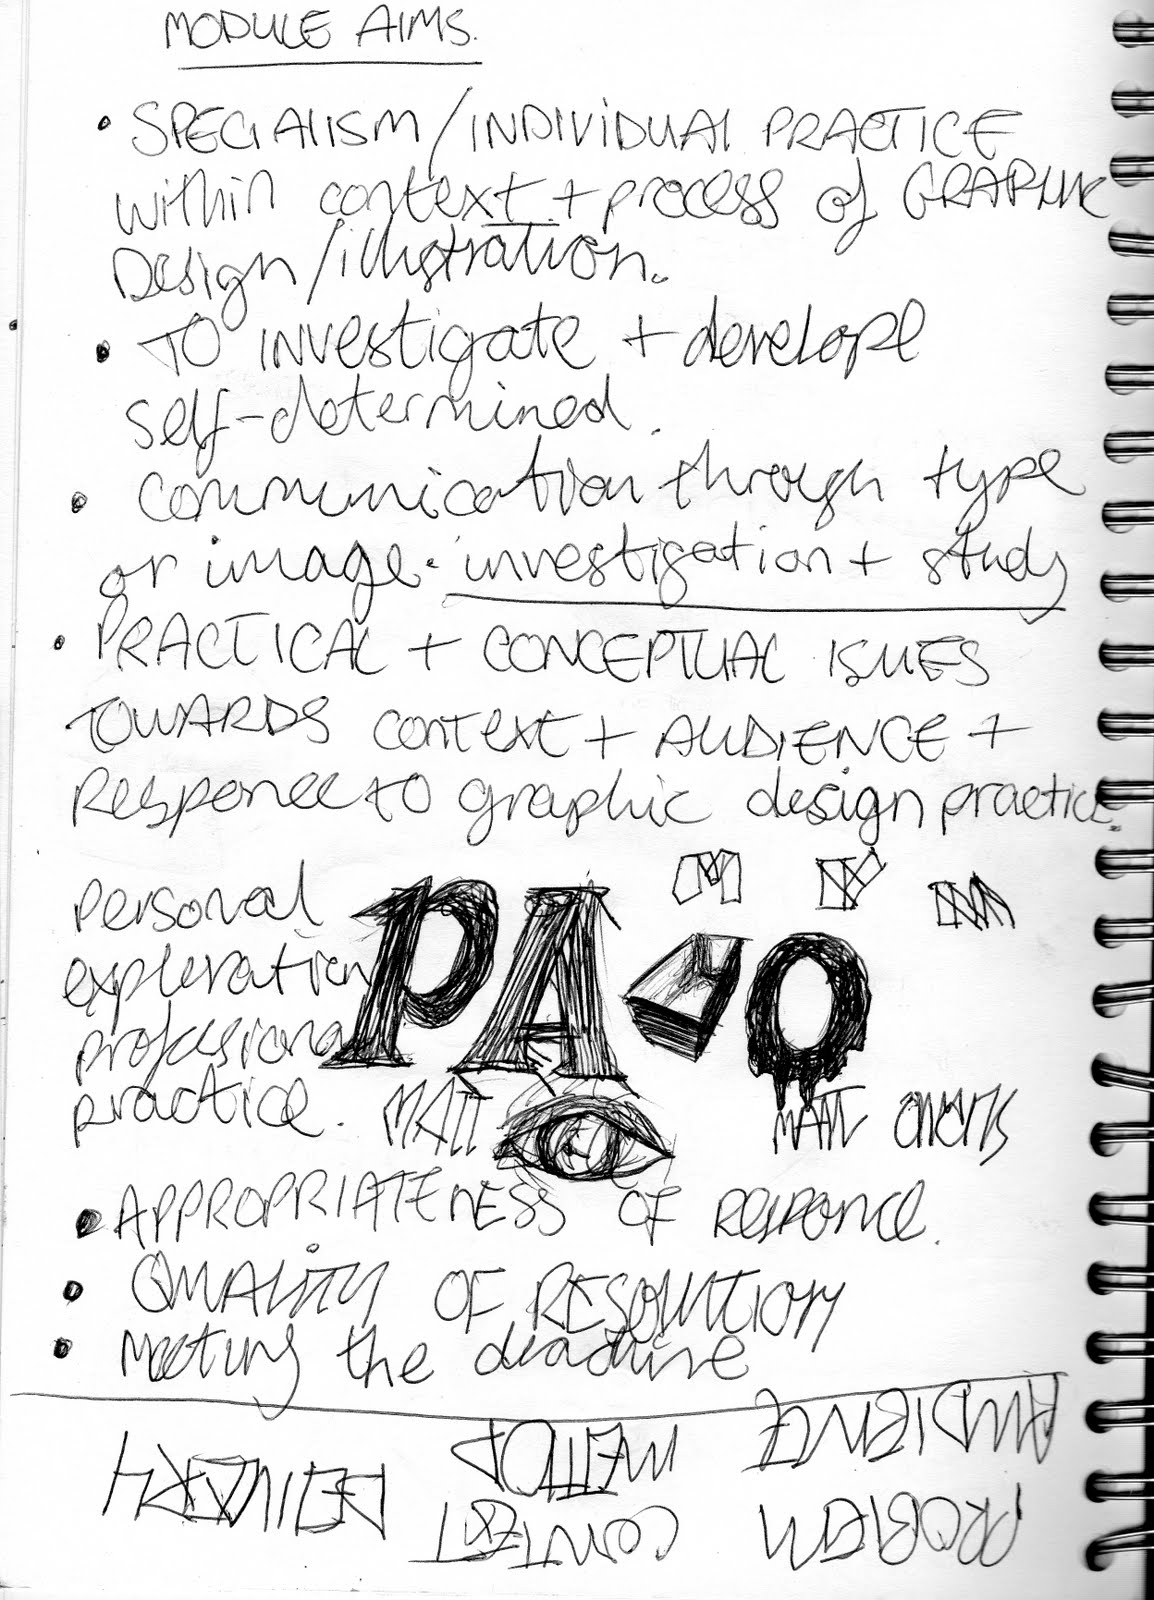 MODULE AIMS.
• SPECIALISM/INDIVIDUAL PRACTICE
within context + process of GRAPHIC
Design/illustration.
• TO investigate + develope
self-determined.
• communication through type
or image. investigation + study
• PRACTICAL + CONCEPTUAL ISUES
TOWARDS context + AUDIENCE +
Responce to graphic design practice.
personal
exploration
profesional
practice.
PA
M
M
MATT
MATT OWENS
• APPROPRIATENESS OF responce.
• QUALITY OF RESOLUTION
• Meeting the deadline
PROBLEM CONTEXT DELIVERY
AUDIENCE METHOD